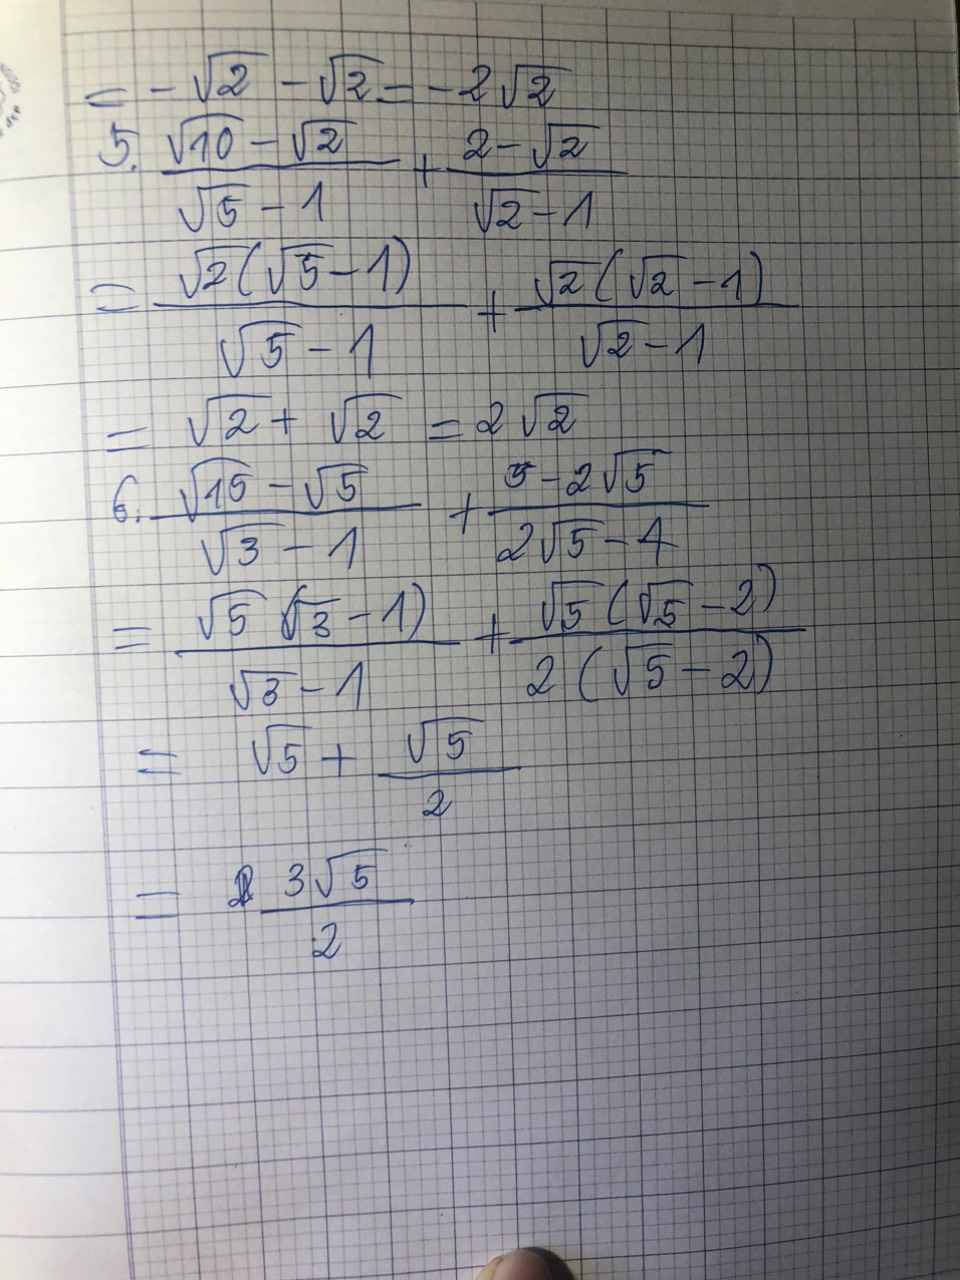 = -√2 - √2 = -2√2
5. (√10 - √2)/(√5 - 1) + (2 - √2)/(√2 - 1)
= √2(√5 - 1)/(√5 - 1) + √2(√2 - 1)/(√2 - 1)
= √2 + √2 = 2√2
6. (√15 - √5)/(√3 - 1) + (5 - 2√5)/(2√5 - 4)
= √5(√3 - 1)/(√3 - 1) + √5(√5 - 2)/2(√5 - 2)
= √5 + √5/2
= 3√5/2